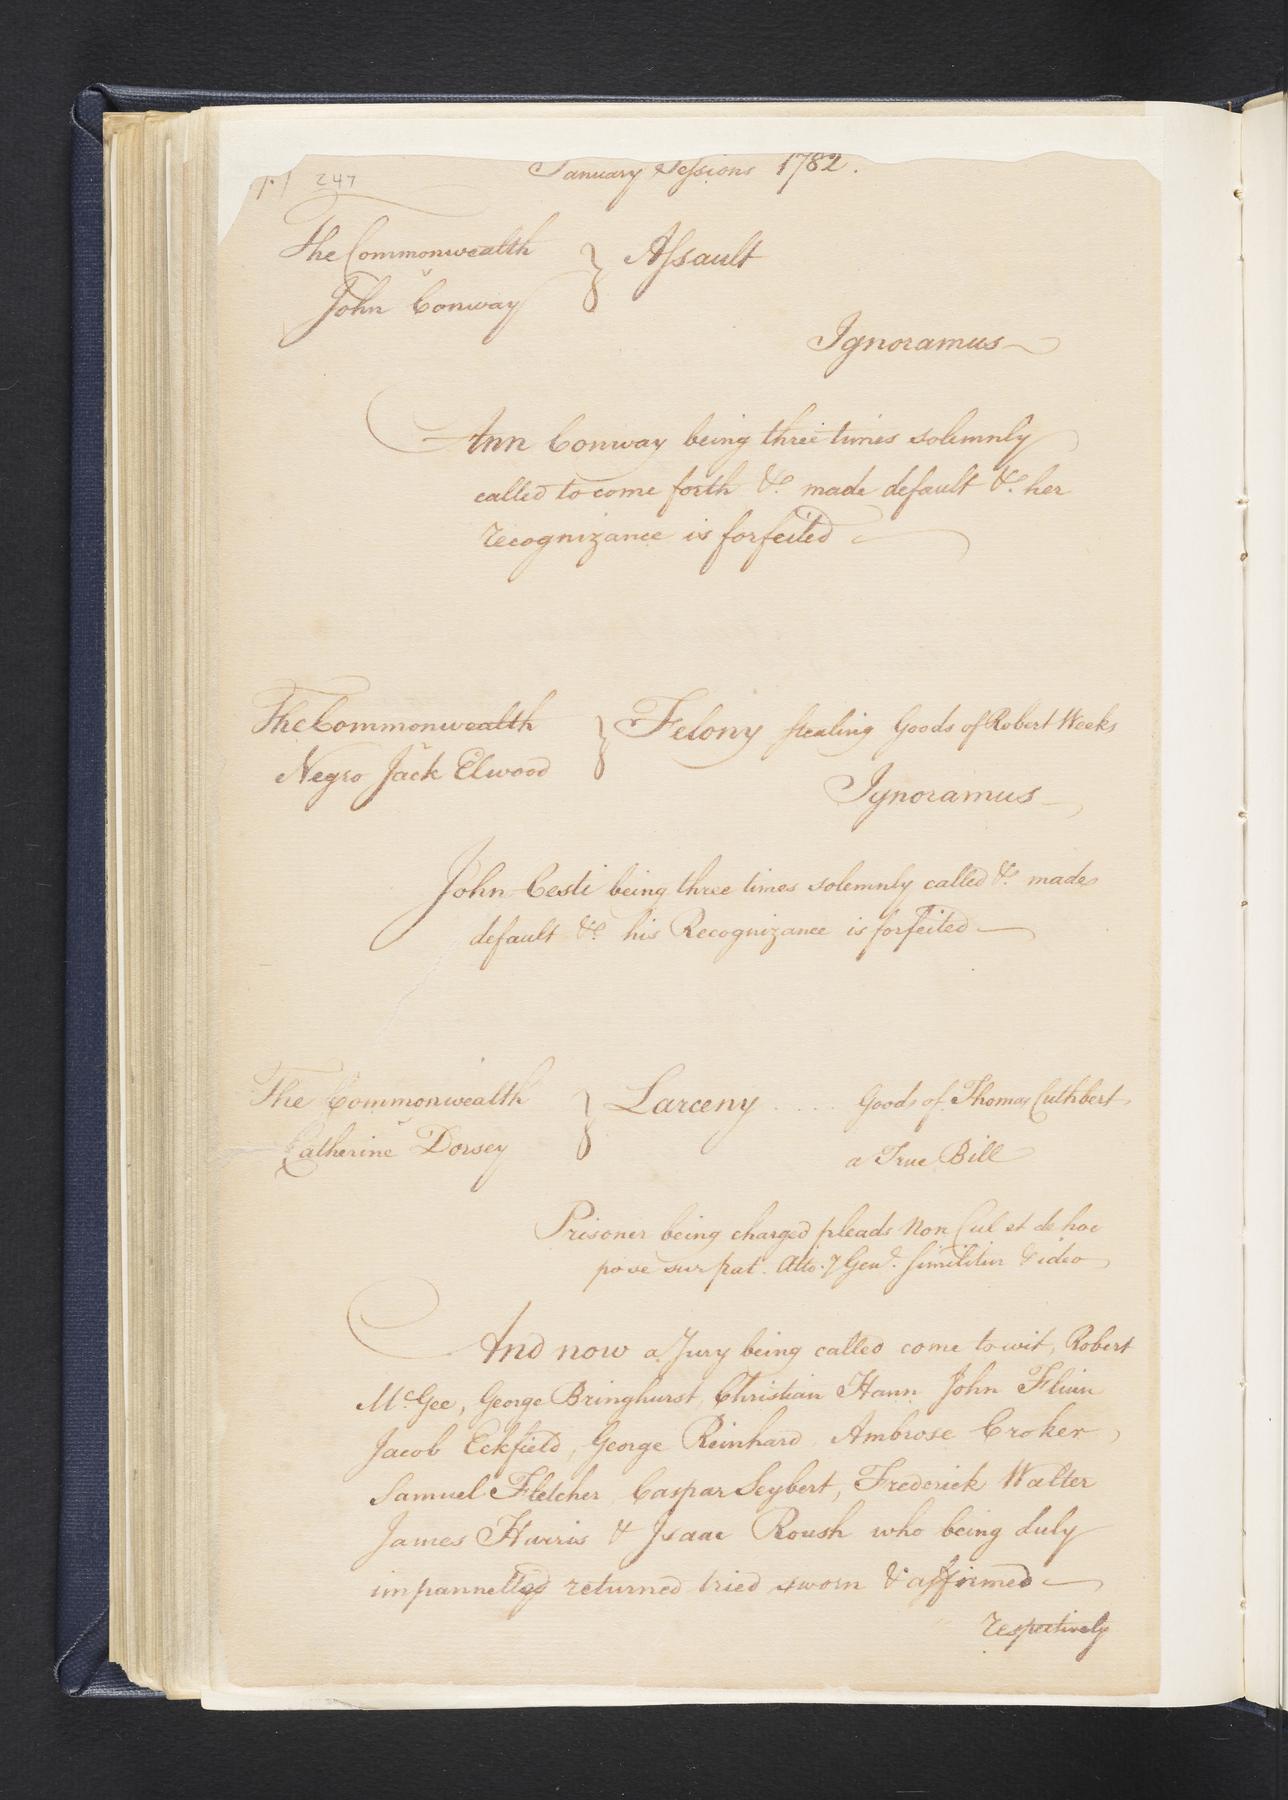 247
January Sessions 1782.
The Commonwealth } Assault
v
John Conway
Ignoramus
Ann Conway being three times solemnly
called to come forth &c. made default &c. her
recognizance is forfeited
The Commonwealth } Felony stealing Goods of Robert Weeks
v
Negro Jack Elwood
Ignoramus
John Cesti being three times solemnly called &c. made
default &c. his Recognizance is forfeited
The Commonwealth } Larceny .... Goods of Thomas Cuthbert
v
Catherine Dorsey
a True Bill
Prisoner being charged pleads Non Cul et de hoc
pose sur pat. Atto. Genl. similiter & ideo
And now a Jury being called come to wit, Robert
McGee, George Bringhurst, Christian Hann John
Jacob Eckfield, George Reinhard, Ambrose Croker,
Samuel Fletcher, Caspar Seybert, Frederick Walter
James Harris & Isaac Roush who being duly
impannelled returned tried sworn & affirmed
respectively